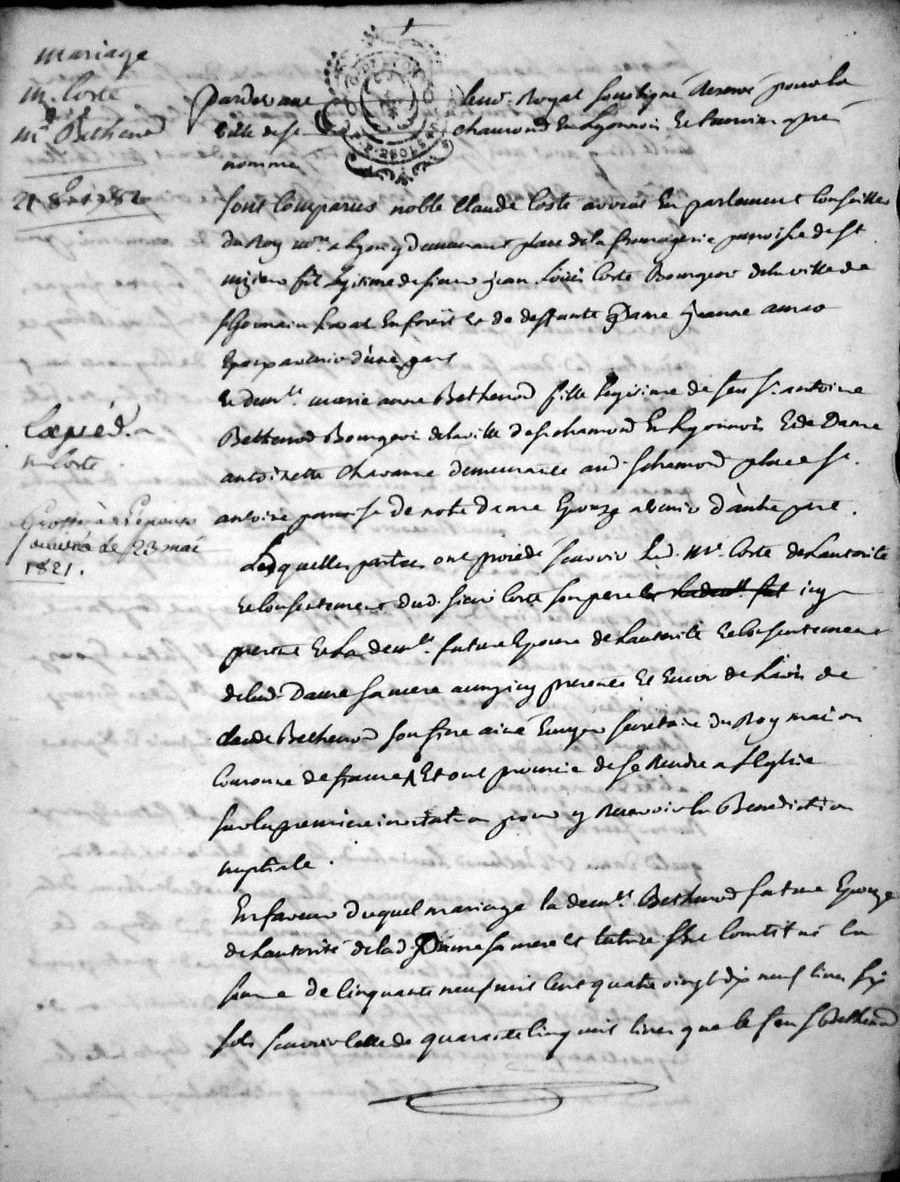 mariage
m. Coste
mlle Bethenod
21 8bre 1782
pardevant le no.re Royal soussigné reservé pour la
ville de St chamond En Lyonnois Et temoins apres
nommés
sont Comparus noble Claude Coste avocat En parlement Conseiller
du Roy a Lyon y demeurant place de la fromagerie parroisse de St
nizier fils Legitime de sieur jean Louis Coste Bourgeois de la ville de
St Germain Laval En forest Et de deffunte Dame jeanne
Epoux avenir d'une part
Et demlle marie anne Bethenod fille legitime de feu sr antoine
Bethenod Bourgeois de la ville de St chamond En Lyonnois Et de Dame
antoinette Chavanne demeurante aud. St chamond place St
antoine parroisse de notre dame Epouze avenir d'autre part.
Expéd. a
m Coste.
Grosse à l'épouse
délivrée le 23 mai
1821.
Lesquelles parties ont procédé sçavoir led. Mr. Coste de Lautorité
Et Consentement dud. sieur Coste son pere icy
present Et La demlle. future Epouse de Lautorité Et Consentement
de lad. Dame sa mere aussy icy presente Et Encor de L'avis de
claude Bethenod son frere ainé Ecuyer secretaire du Roy maison
Couronne de france, Et ont promis de se Rendre a l'Eglise
sur la premiere invitation pour y Recevoir la Benediction
nuptiale.
En faveur duquel mariage la demlle. Bethenod future Epouze
de Lautorité de lad. Dame sa mere Et tutrice s'est Constitué la
somme de Cinquante neuf mil Cent quatre vingt dix neuf livres six
sols sçavoir Celle de quarante Cinq mil livres que le feu s. Bethenod